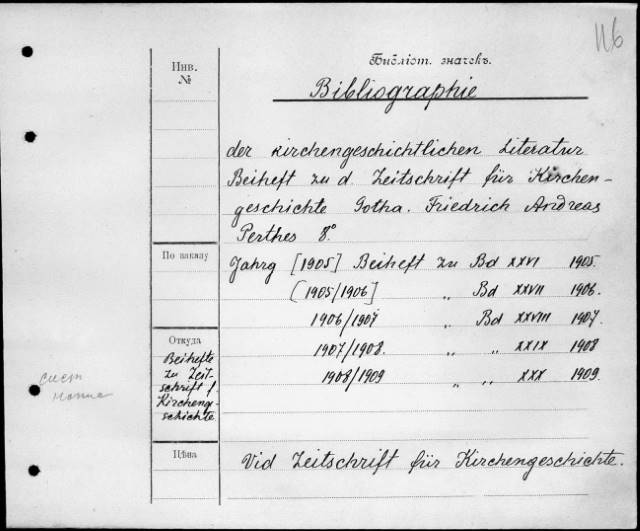 Инв.
№
Библіот. значекъ.
Bibliographie
der kirchengeschichtlichen Literatur
Beiheft zu d. Zeitschrift für Kirchen-
geschichte Gotha. Friedrich Andreas
Perthes 8°
По заказу
Jahrg [1905] Beiheft zu Bd XXVI 1905.
[1905/1906] „ Bd XXVII 1906.
1906/1907 „ Bd XXVIII 1907.
Откуда
1907/1908. „ „ XXIX 1908
1908/1909 „ „ XXX 1909.
Beihefte
zu Zeit-
schrift f
Kircheng-
schichte
Цѣна
Vid Zeitschrift für Kirchengeschichte.